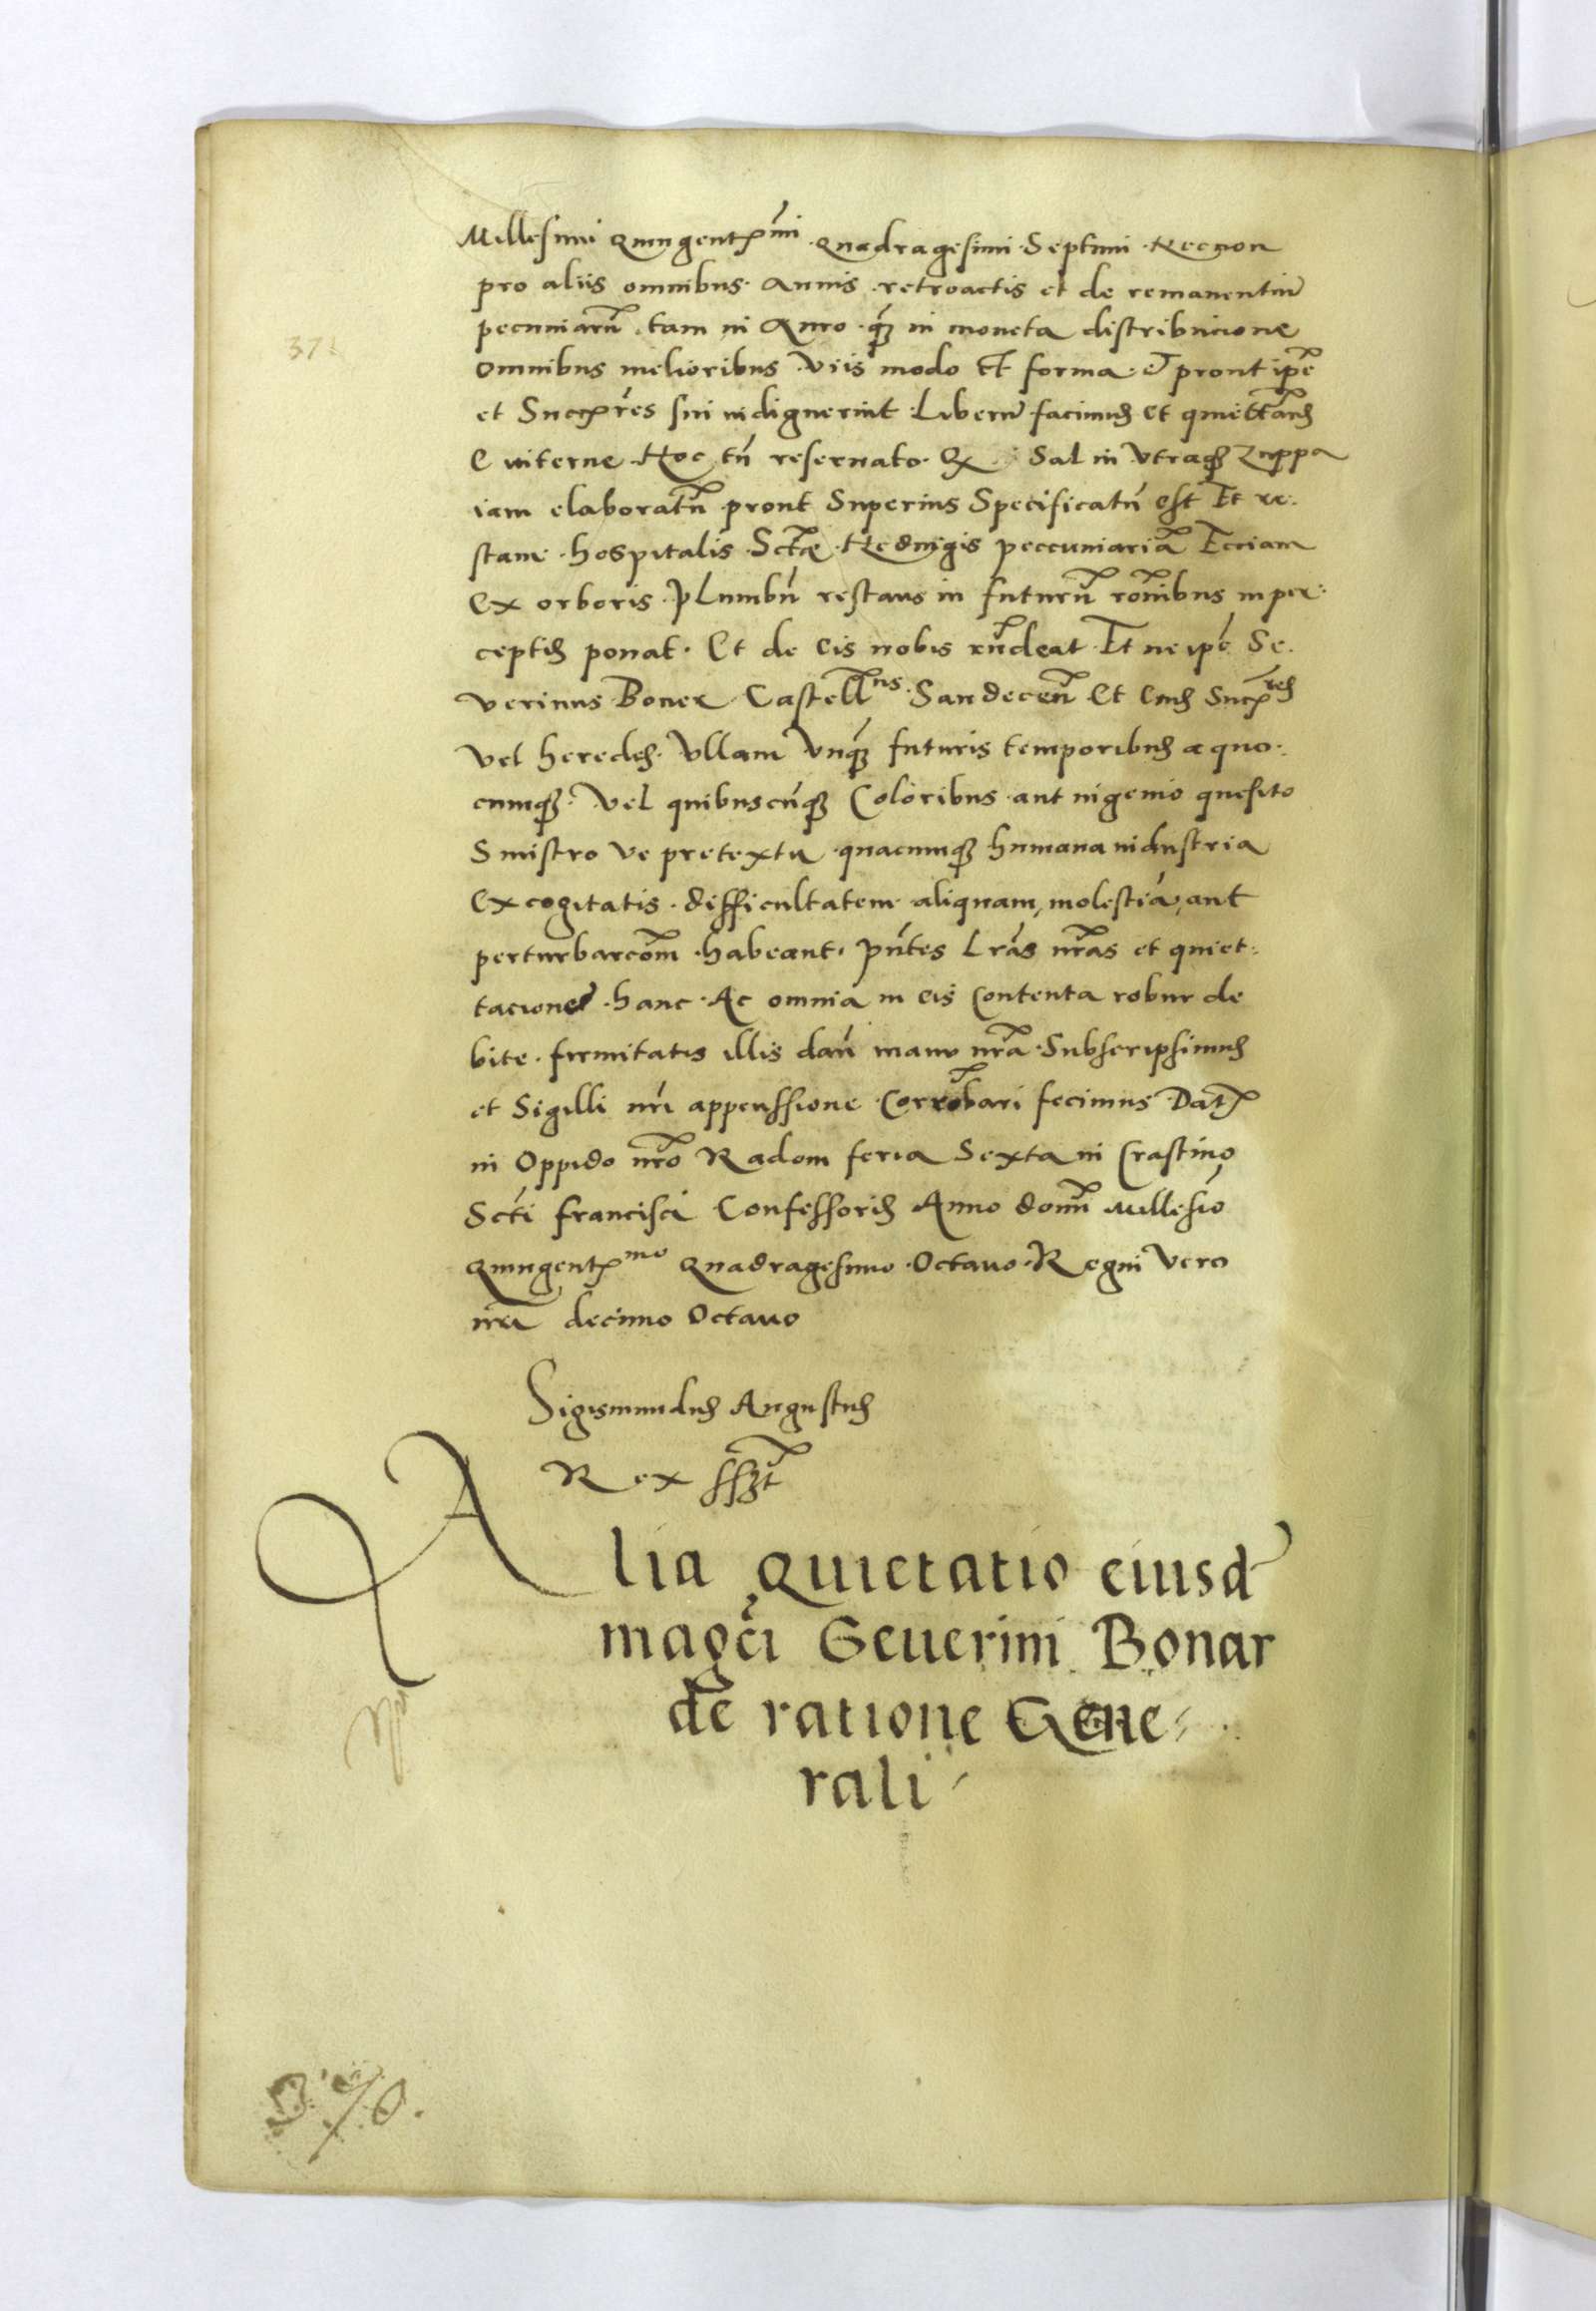 Millesimi Quingentꝭmi Quadragesimi Septimi Necnon
pro aliis omnibus annis retroactis et de remanentiū
pecuniarū tam in Auro qȝ in moneta distribucione
Omnibus melioribus viis modo et forma et prout ipē
et Succꝭrēs sui indiguerint Liberū facimus et quiettāꝰ
Hoc tn̄ reservato Sal in vtraqȝ zuppa
iam elaboratū prout Superius Specificatū est Et re
stam hospitalis Sctæ Hedvigis peccuniariā Ecciam
Ex orboris plumbū restans in futurū rōnibus in per
ceptis ponat Et de eis nobis rn̄deat Et ne ipē Se
verinus Boner Castellꝰⁿˢ Sandeceñ Et Eius Succꝭres
vel heredes vllam vnqȝ futuris temporibus a quo
cumqȝ vel quibuscūqȝ Coloribus aut ingenio quesito
Sinistro ve pretextu quacumqȝ humana industria
Excogitatis difficultatem aliquam, molestiā, aut
perturbarcōm habeant pn̄tes Lrās nr̄as et quiet
tacionē hanc Ac omnia in eis Contenta robur de
bite firmitatis illis dan̄ manu nr̄a Subscripsimus
et Sigilli nr̄i appenssione Corrobari fecimus Datꝭ
in Oppido nr̄o Radom feria Sexta in Crastino
Scti francisci Confessoris Anno domī Millesīo
Quingentꝭmo Quadragesimo Octavo Regni vero
nr̄i decimo Octavo
Sigismundus Augustus
Rex sszt
Alia Quietatio eiusd
magci Seuerini Bonar
de ratione Gene
rali
371
370.